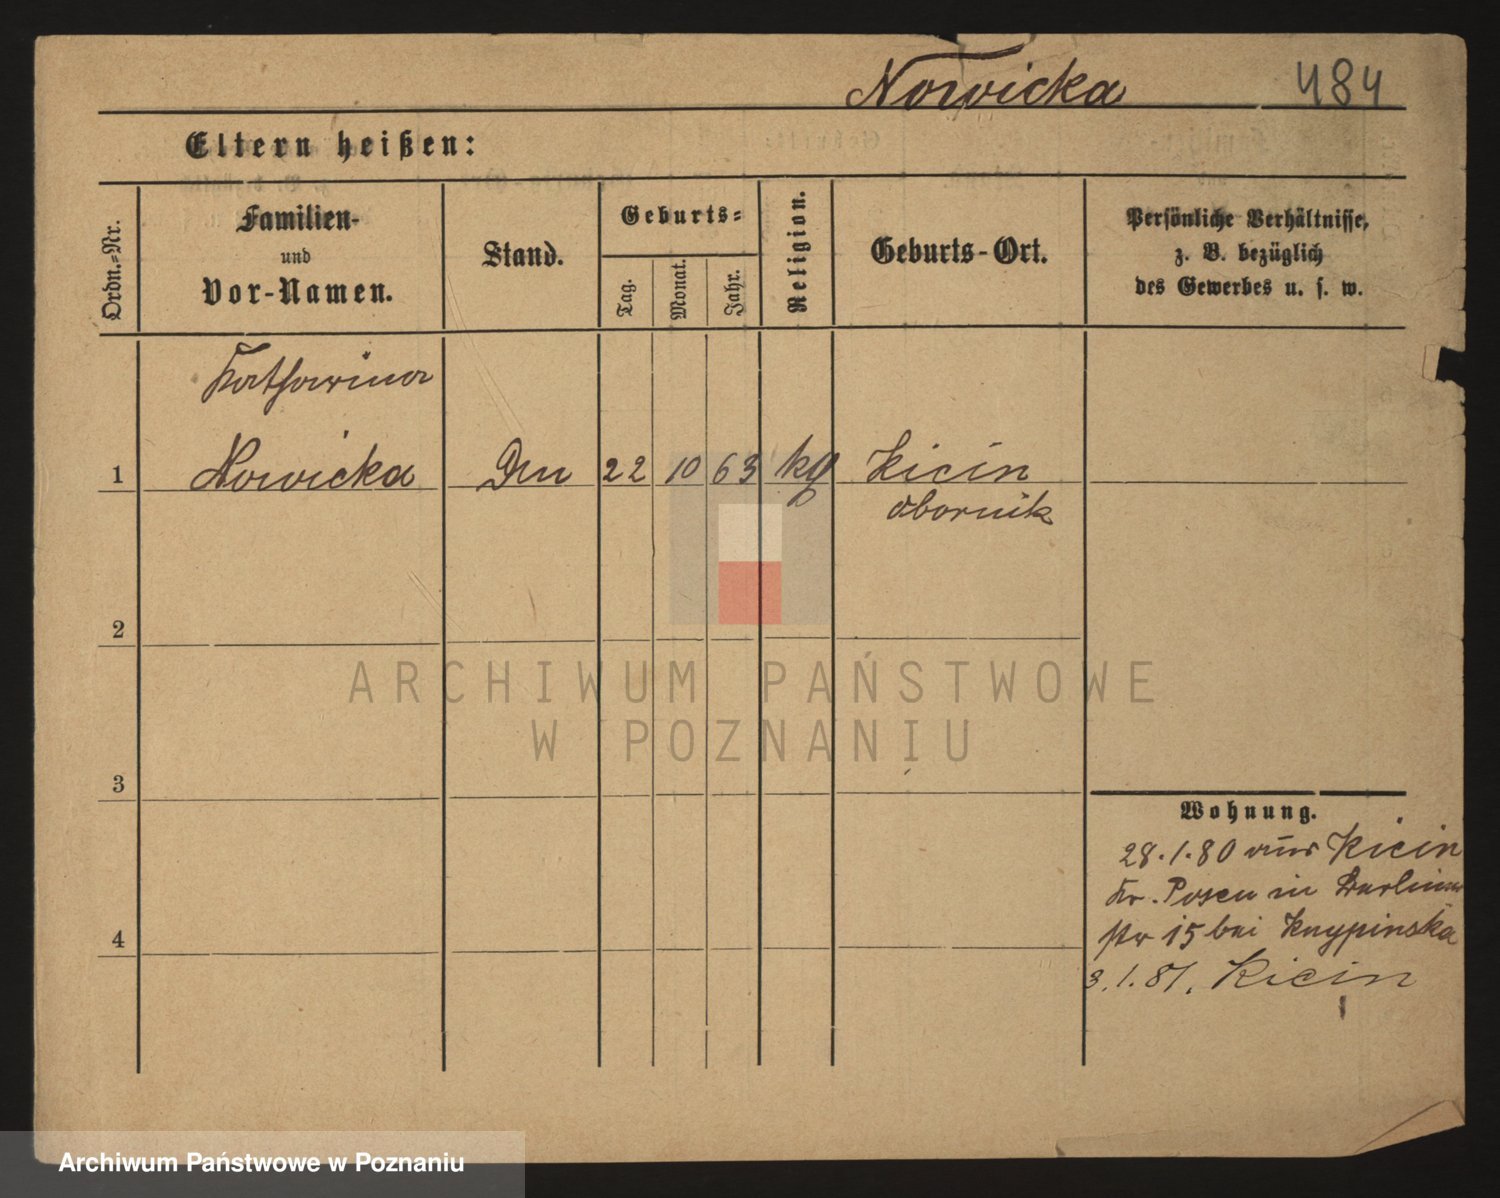 Nowicka 484
Eltern heißen:
Ordn.-Nr.
Familien-
und
Vor-Namen.
Stand.
Geburts-
Tag.
Monat.
Jahr.
Religion.
Geburts-Ort.
Persönliche Verhältnisse,
z. B. bezüglich
des Gewerbes u. s. w.
Katharina
1 Nowicka 22 10 63 kg Kicin
Obornik
2
3
4
Wohnung.
28.1.80 aus Kicin
Kr. Posen in Berliner
str 15 bei Knypinska
3.1.81. Kicin
ARCHIWUM PAŃSTWOWE
W POZNANIU
Archiwum Państwowe w Poznaniu